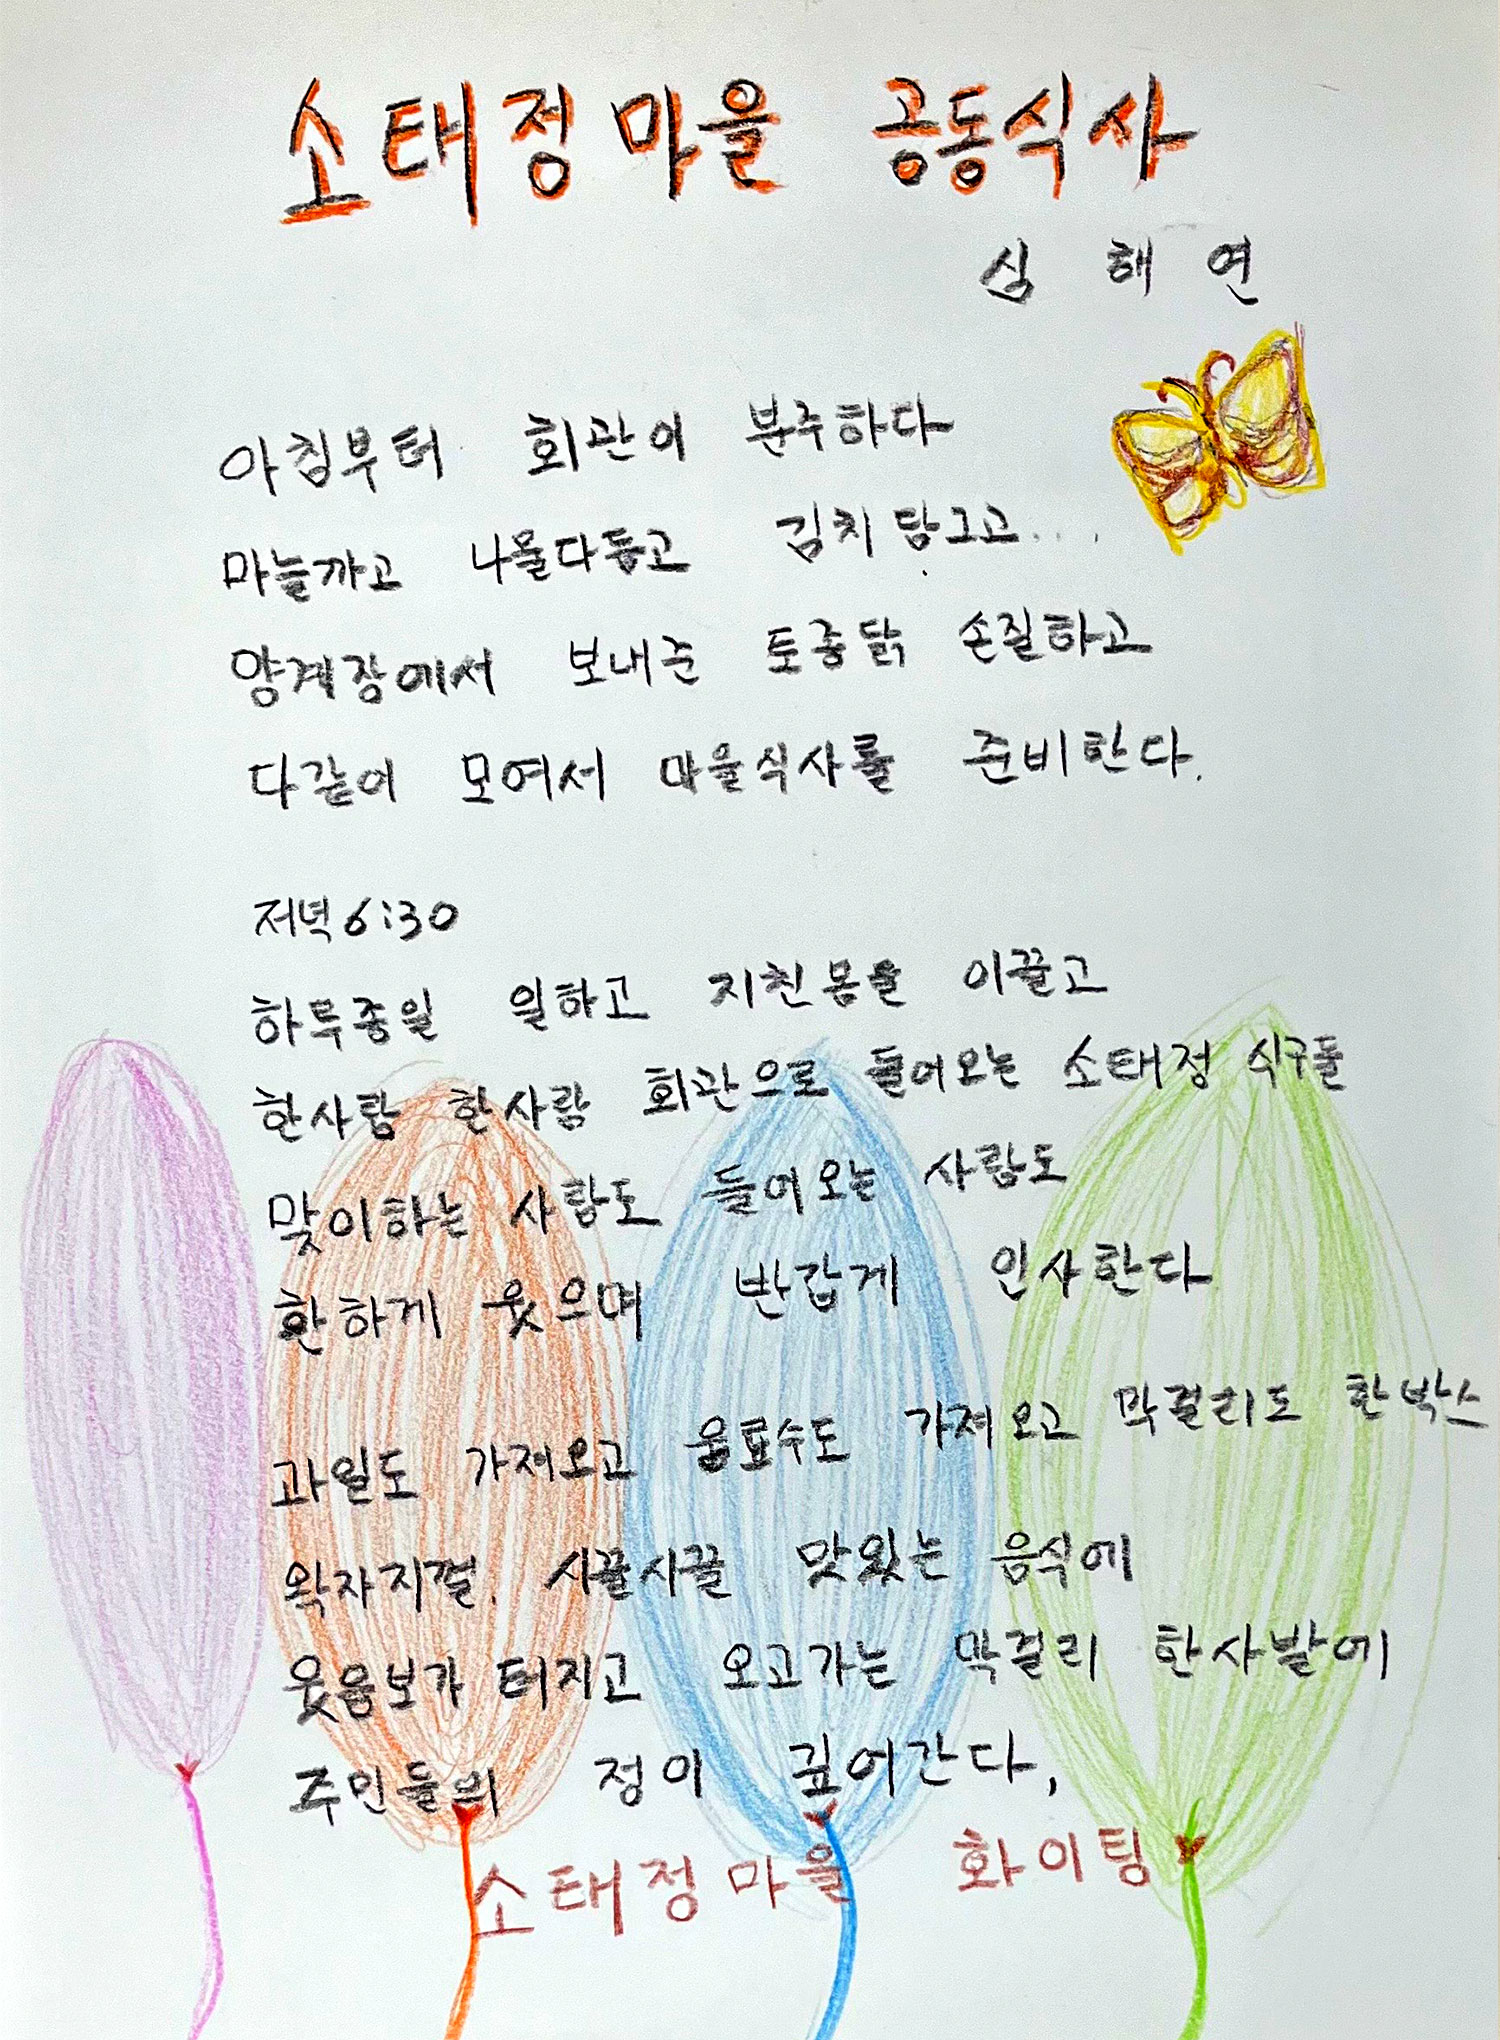 소태정마을 공동식사
심해연
아침부터 회관이 분주하다
마늘까고 나물다듬고 김치 담그고...
양계장에서 보내준 토종닭 손질하고
다같이 모여서 마을식사를 준비한다.
저녁 6:30
하루종일 일하고 지친몸을 이끌고
한사람 한사람 회관으로 들어오는 소태정 식구들
맞이하는 사람도 들어오는 사람도
환하게 웃으며 반갑게 인사한다
과일도 가져오고 음료수도 가져오고 막걸리도 한박스
왁자지껄. 시끌시끌 맛있는 음식에
웃음보가 터지고 오고가는 막걸리 한사발에
주민들의 정이 깊어간다,
소태정마을 화이팅